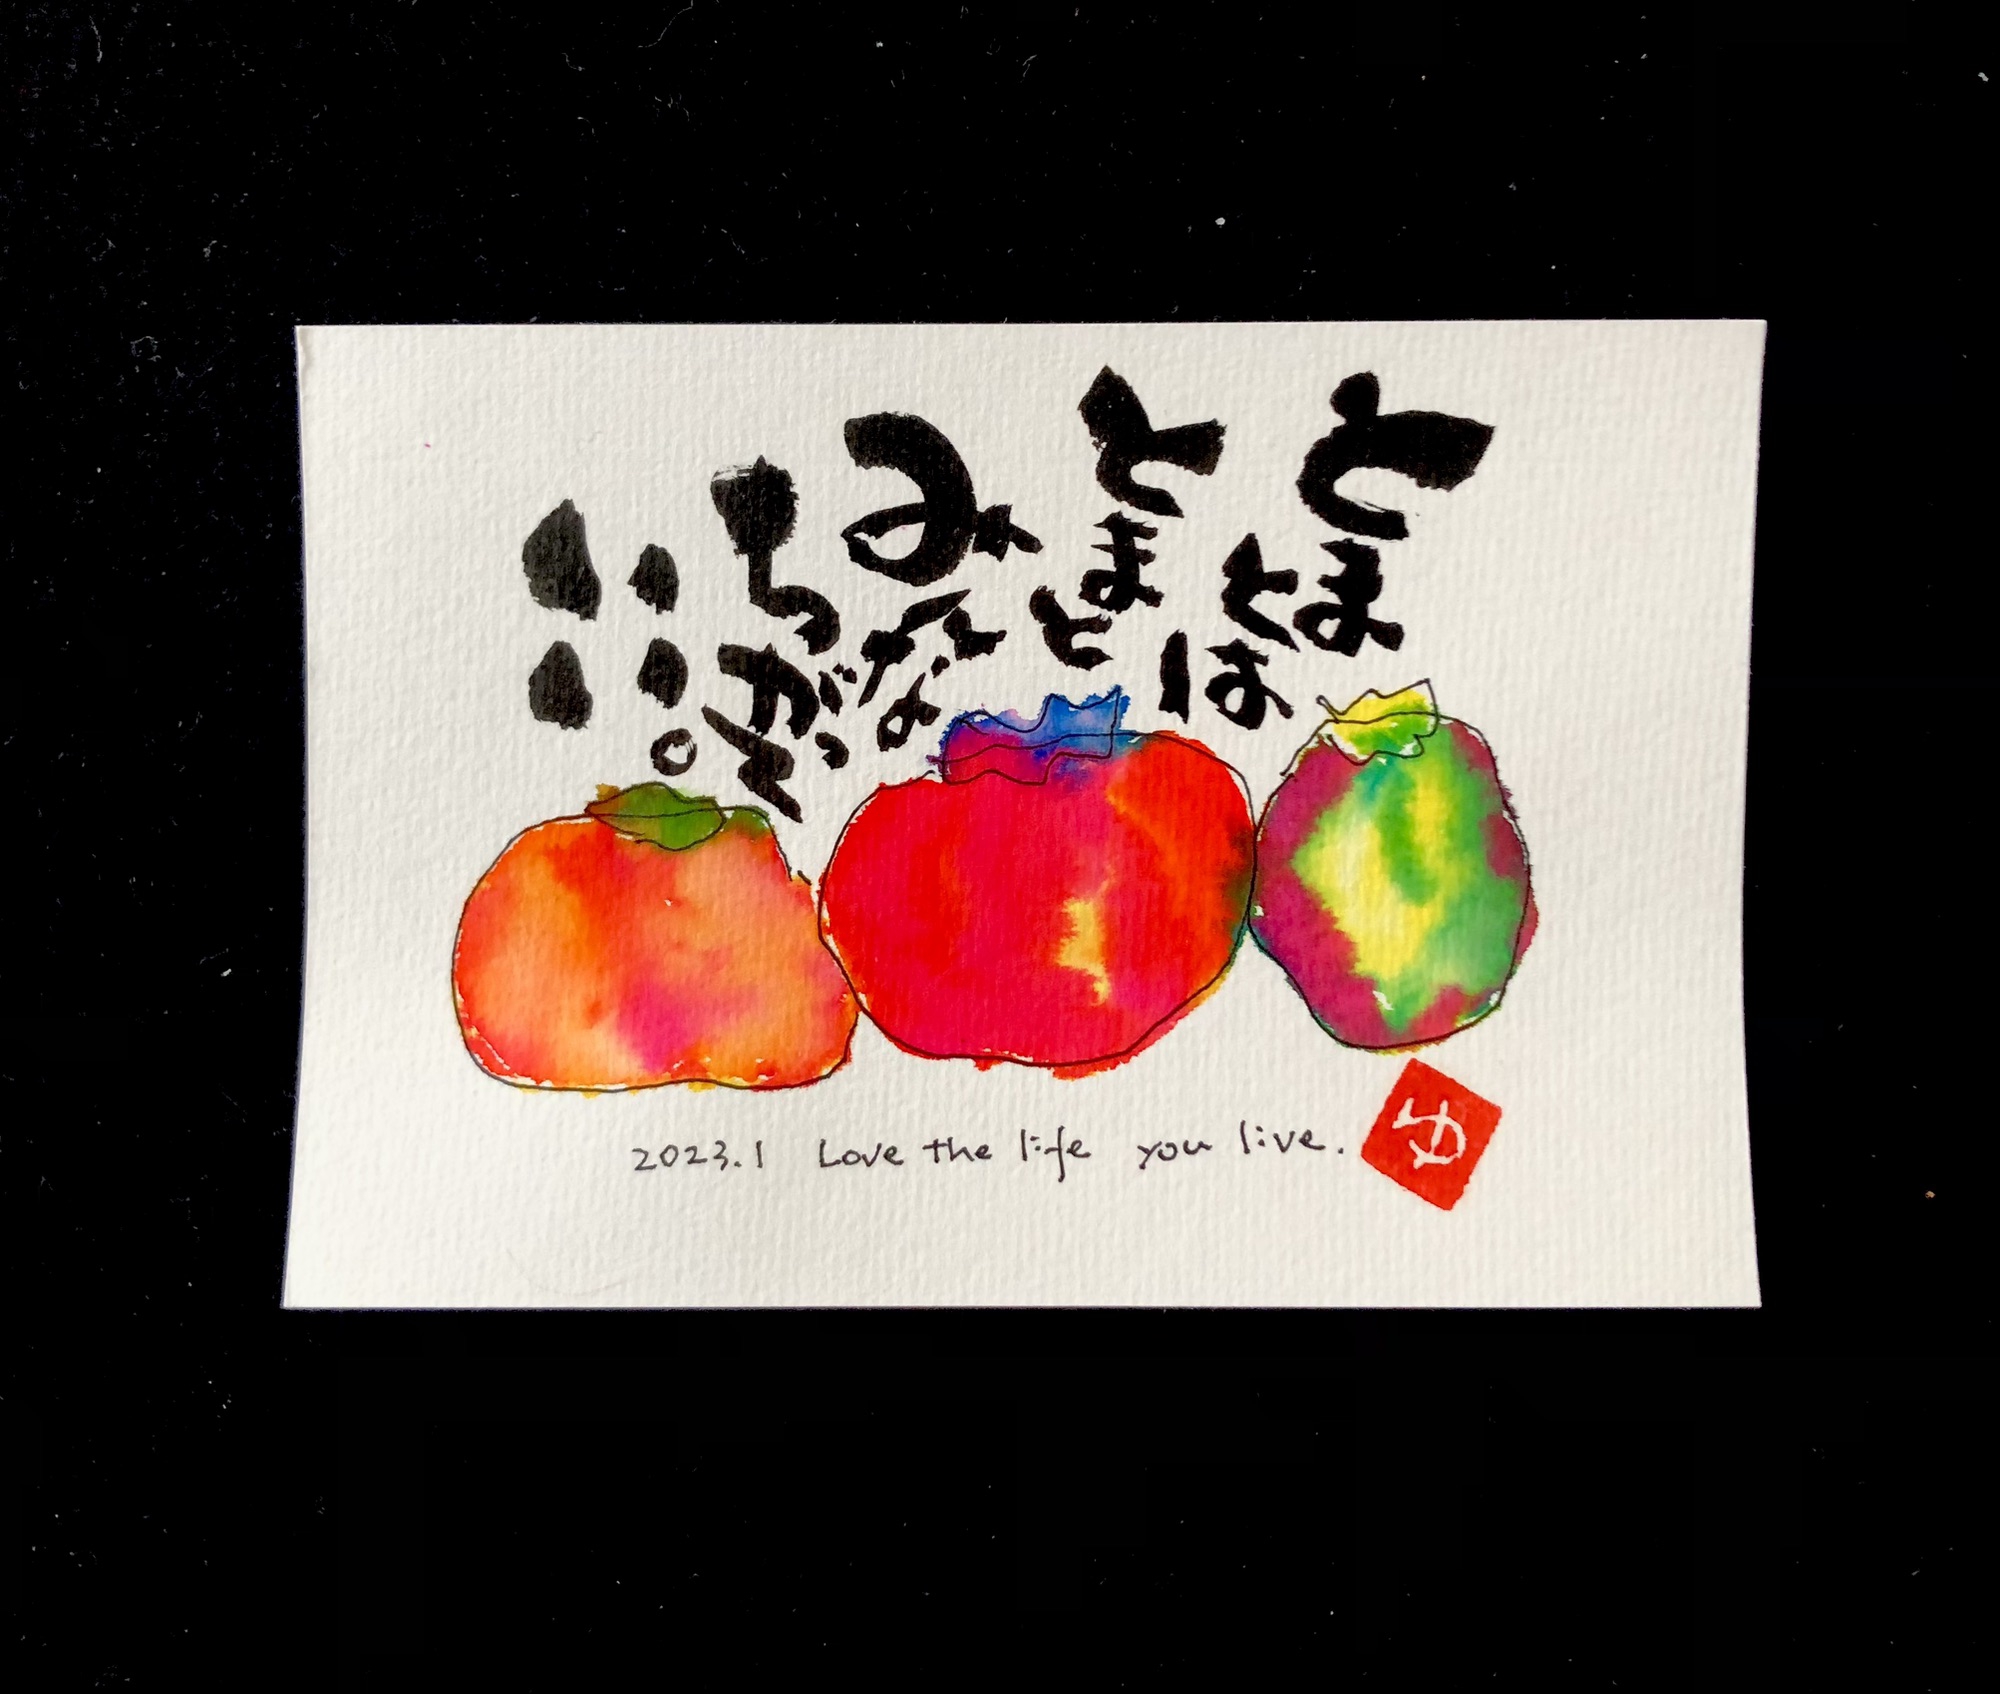 とまとは
とまと
みんな
ちがって
いい。
2023.1 Love the life you live.
ゆ